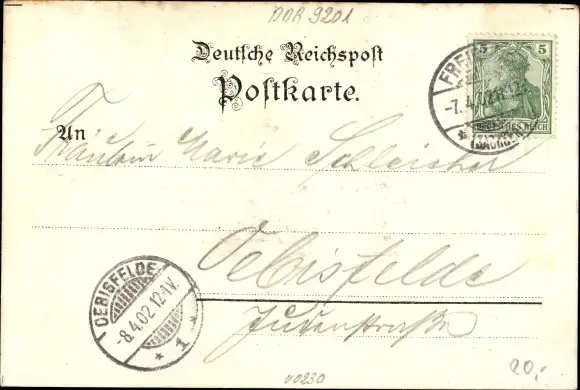 DDR 9201
Deutsche Reichspost
Postkarte.
5 5
DEUTSCHES REICH
-7.4.02
An
Fräulein Marie Schleicher
Oebisfelde
Judenstraße
OEBISFELDE
-8.4.02.12-1V.
* 1 *
V0230
20,-